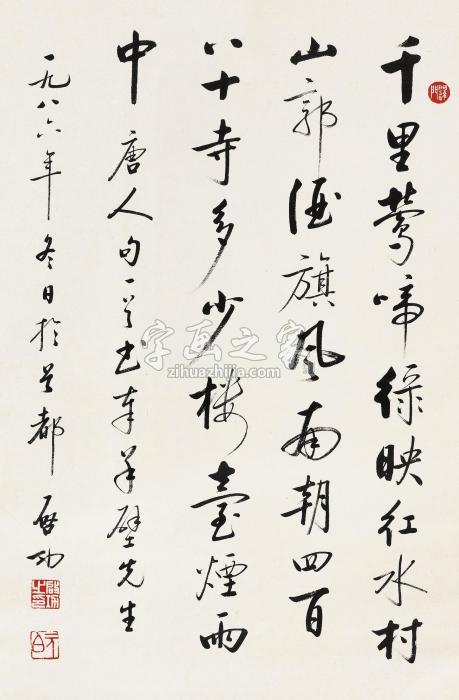 千里鶯啼绿映红水村
山郭酒旗风南朝四百
八十寺多少楼臺煙雨
中 唐人句一首书奉羊璧先生
一九八六年冬日於首都 启功
启功之印
元白
字画之家
zihuazhijia.com